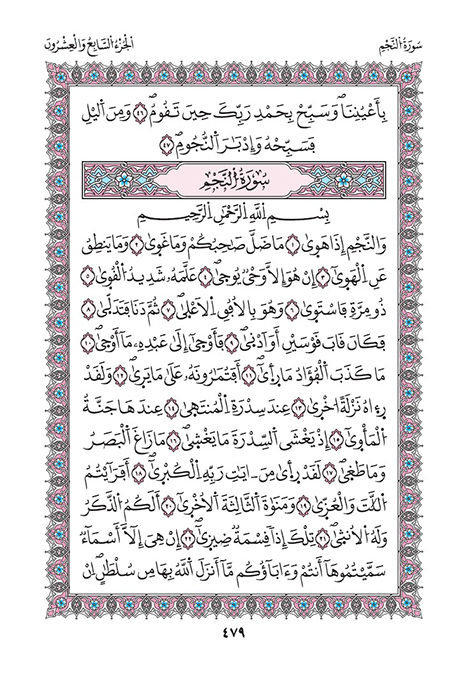 سُورَةُ النَّجْمِ
الجُزءُ السَّابِعُ وَالْعِشْرُونَ
بِأَعْيُنِنَا وَسَبِّحْ بِحَمْدِ رَبِّكَ حِينَ تَقُومُ ٤٦ وَمِنَ اَليْلِ
فَسَبِّحْهُ وَإِدْبَٰرَ اَلنُّجُومِ ٤٧
سُورَةُ النَّجْمِ
بِسْمِ اِللَّهِ اِلرَّحْمَٰنِ اِلرَّحِيمِ
وَالنَّجْمِ إِذَا هَوىٰ ١ مَا ضَلَّ صَاحِبُكُمْ وَمَا غَوىٰ ٢ وَمَا يَنطِقُ
عَنِ اِلْهَوىٰ ٣ إِنْ هُوَ إِلَّا وَحْيٌ يُوحىٰ ٤ عَلَّمَهُۥ شَدِيدُ اُلْقُوىٰ ٥
ذُو مِرَّةٍ فَاسْتَوىٰ ٦ وَهُوَ بِالُافُقِ اِلَاعْلىٰ ٧ ثُمَّ دَنَا فَتَدَلّىٰ ٨
فَكَانَ قَابَ قَوْسَيْنِ أَوَ اَدْنىٰ ٩ فَأَوْحىٰ إِلَىٰ عَبْدِهِۦ مَا أَوْحىٰ ١٠
مَا كَذَبَ اَلْفُؤَادُ مَا رَأىٰ ١١ أَفَتُمَٰرُونَهُۥ عَلَىٰ مَا يَرىٰ ١٢ وَلَقَدْ
رَءاهُ نَزْلَةً اُخْرىٰ ١٣ عِندَ سِدْرَةِ اِلْمُنتَهىٰ ١٤ عِندَهَا جَنَّةُ
اُلْمَأْوىٰ ١٥ إِذْ يَغْشَى اَلسِّدْرَةَ مَا يَغْشىٰ ١٦ مَا زَاغَ اَلْبَصَرُ
وَمَا طَغىٰ ١٧ لَقَدْ رَأىٰ مِنَ ايَٰتِ رَبِّهِ اِلْكُبْرىٰ ١٨ أَفَرَٰيْتُمُ
اُللَّٰتَ وَالْعُزّىٰ ١٩ وَمَنَوٰةَ اَلثَّالِثَةَ اَلُاخْرىٰ ٢٠ أَلَكُمُ اُلذَّكَرُ
وَلَهُ اُلُانثىٰ ٢١ تِلْكَ إِذاً قِسْمَةٌ ضِيزىٰ ٢٢ إِنْ هِيَ إِلَّا أَسْمَاءٌ
سَمَّيْتُمُوهَا أَنتُمْ وَءَابَاؤُكُم مَّا أَنزَلَ اَللَّهُ بِهَا مِن سُلْطَٰنٍ اِنْ
٤٧٩